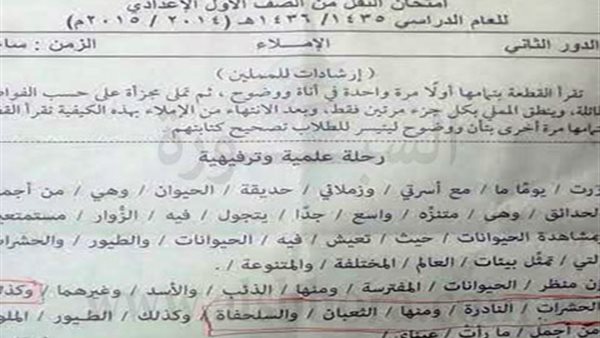 امتحان النقل من الصف الأول الإعدادي
للعام الدراسي ١٤٣٥/ ١٤٣٦هـ (٢٠١٤ / ٢٠١٥م)
الدور الثاني الإملاء الزمن: ساعـ
( إرشادات للمملين )
تقرأ القطعة بتمامها أولًا مرة واحدة في أناة ووضوح ، ثم تملى مجزأة على حسب الفواصـ
ـاثلة، وينطق المملي بكل جزء مرتين فقط، وبعد الانتهاء من الإملاء بهذه الكيفية تقرأ القطـ
ـتمامها مرة أخرى بتأن ووضوح ليتيسر للطلاب تصحيح كتابتهم.
رحلة علمية وترفيهية
زرت / يومًا ما / مع أسرتي / وزملائي / حديقة / الحيوان / وهي / من أجمـ
الحدائق / وهي / متنزه / واسع / جدًا / يتجول / فيه / الزُّوار / مستمتعيـ
بمشاهدة الحيوانات / حيث / تعيش / فيه / الحيوانات / والطيور / والحشرات
التي / تمثل / بيئات / العالم / المختلفة / والمتنوعة /.
إن منظر / الحيوانات / المفترسة / ومنها / الذئب / والأسد / وغيرهما / وكذلك
الحشرات / النادرة / ومنها / الثعبان / والسلحفاة / وكذلك / الطيور / الملو
من أجمل / ما رأت / عيناي /